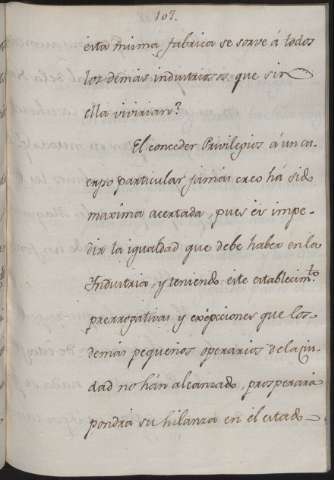 107.
esta misma fabrica se sorve á todos
los demás industriosos que sin
ella vivirian?
El conceder Privilegios á un cu-
erpo particular jamás creo há sido
maxima acertada, pues és impe-
dir la igualdad que debe haber en la
Industria, y teniendo este establecim.to
prerrogativas y exepciones que los
demás pequeños operarios de la ciu-
dad no hán alcanzado, prosperará
pondrá su hilanza en el estado